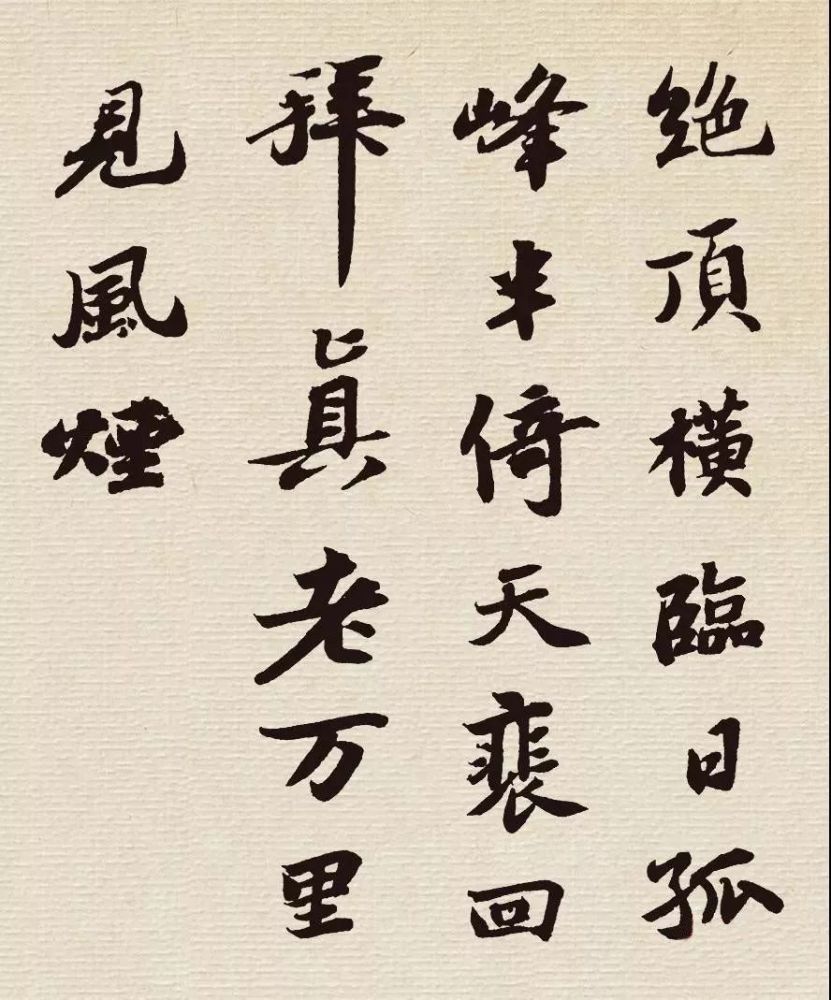 绝頂橫臨日孤
峰半倚天裴回
拜真老万里
見風煙